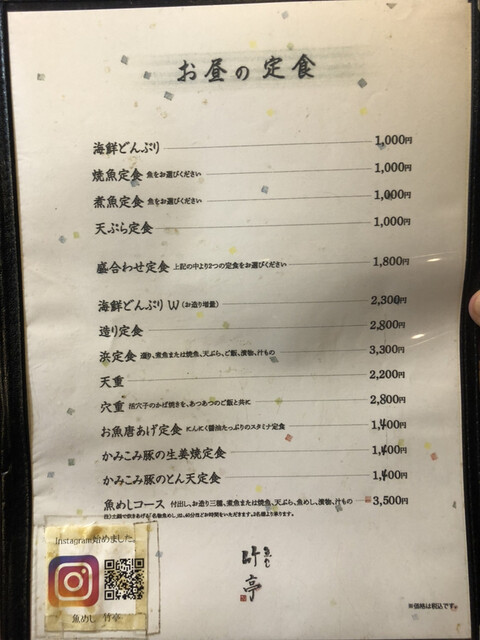 お昼の定食
海鮮どんぶり 1,000円
焼魚定食 魚をお選びください 1,000円
煮魚定食 魚をお選びください 1,000円
天ぷら定食 1,000円
盛合わせ定食 上記の中より2つの定食をお選びください 1,800円
海鮮どんぶりW (お造り増量) 2,300円
造り定食 2,800円
浜定食 造り、煮魚または焼魚、天ぷら、ご飯、漬物、汁もの 3,300円
天重 2,200円
穴重 活穴子のかば焼きを、あつあつのご飯と共に 2,800円
お魚唐あげ定食 にんにく醤油たっぷりのスタミナ定食 1,400円
かみこみ豚の生姜焼定食 1,400円
かみこみ豚のとん天定食 1,400円
魚めしコース 付出し、お造り三種、煮魚または焼魚、天ぷら、魚めし、漬物、汁もの 3,500円
注)土鍋で炊きあげる「名物魚めし」は、40分ほどお時間をいただきます。2名様より承ります。
Instagram始めました。
魚めし 竹亭
魚めし
竹亭
※価格は税込です。